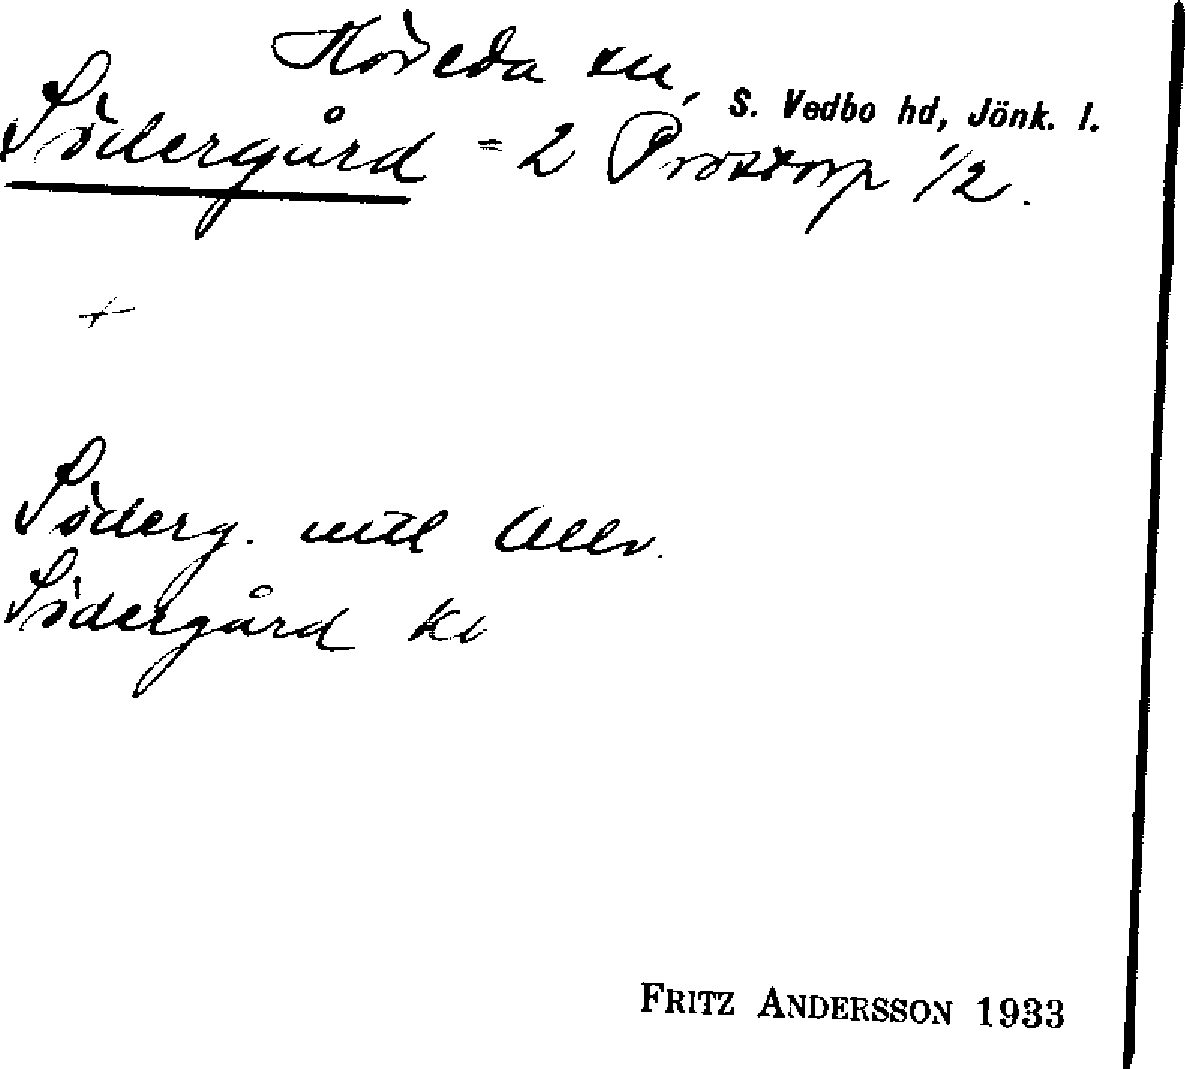 Höreda sn, S. Vedbo hd, Jönk. l.
Södergård = 2 Prostorp 1/2.
+
Söderg. mtl
Södergård
FRITZ ANDERSSON 1933